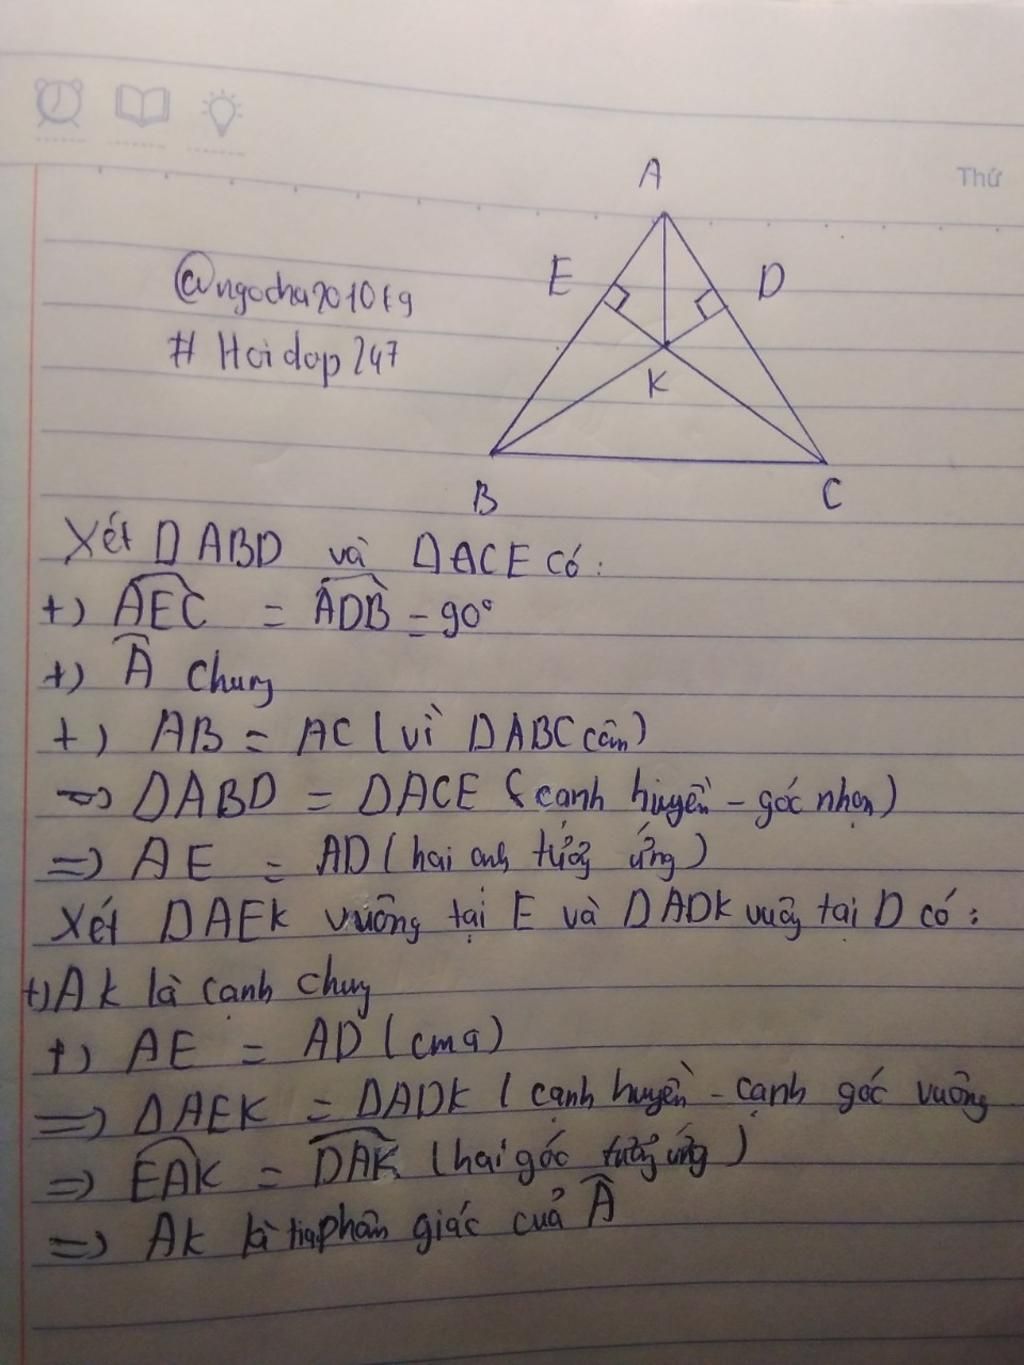 Thứ
A
E
D
@ngocha201019
# Hoidap247
K
B
C
Xét ΔABD và ΔACE có:
+) AEC = ADB = 90°
+) Â chung
+) AB = AC (vì ΔABC cân)
=> ΔABD = ΔACE (cạnh huyền - góc nhọn)
=> AE = AD (hai cạnh tương ứng)
Xét ΔAEK vuông tại E và ΔADK vuông tại D có:
+) AK là cạnh chung
+) AE = AD (cma)
=> ΔAEK = ΔADK (cạnh huyền - cạnh góc vuông
=> EAK = DAK (hai góc tương ứng)
=> AK là tia phân giác của Â